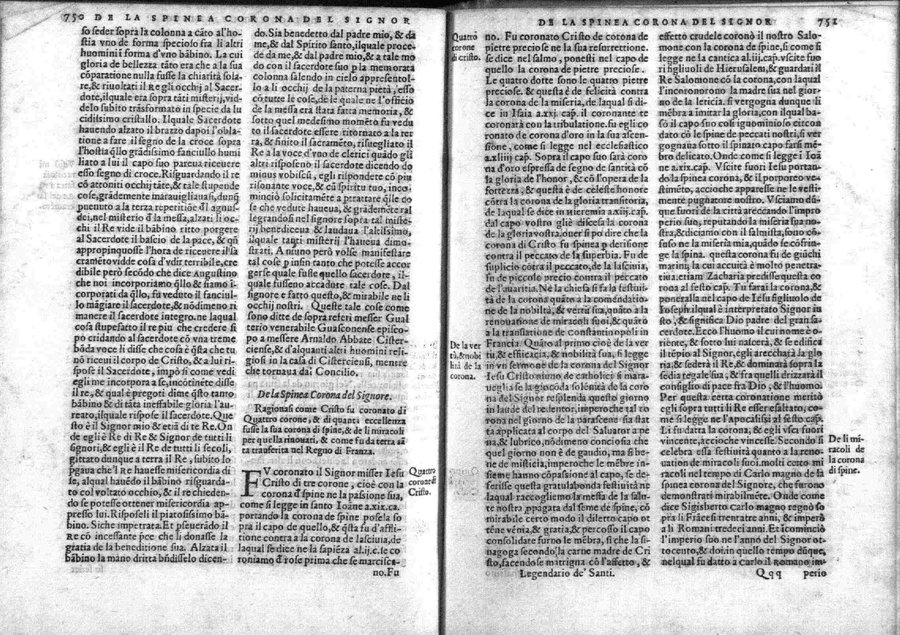 750 DE LA SPINEA CORONA DEL SIGNOR
so seder sopra la colonna a cãto al'ho-
stia vno de forma specioso fra li altri
huomini ĩ forma d'vno bãbino. La cui
gloria de bellezza tãto era che a la sua
cõparatione nulla fusse la chiarità sola-
re, & riuoltati il Re gli occhj al Sacer-
dote, ilquale era sopra tãti misterij, vi-
delo subito trasformato in specie da lu
cidissimo cristallo. Ilquale Sacerdote
hauendo alzato il brazzo dapoi l'obla-
tione a fare il segno de la croce sopra
l'hostia q̃llo grãdissimo fanciullo humi
liato a lui il capo suo pareua riceuere
esso segno di croce. Risguardando il re
cõ attroniti occhij tãte, & tale stupende
cose, grãdemente marauigliauasi, dunq̃
puenuto a la terza repetitiõe d'l agnus
dei, nel misterio d'la messa, alzati li oc-
chi il Re vide il bãbino ritto porgere
al Sacerdote il bascio de la pace, & qñ
appropinquosse l'hora de riceuere il sa
cramẽto vidde cosa d'vdir terribile, cre
dibile però secõdo che dice Augustino
che noi incorporiamo q̃llo & siamo i-
corporati da q̃llo, fu veduto il fanciul-
lo mãgiare il sacerdote, & nõdimeno ri
manere il sacerdote integro. ne laqual
cosa stupefatto il re piu che credere si
po cridando al sacerdote cõ vna treme
bõda voce li disse che cosa è q̃sta che tu
nõ riceui il corpo de Cristo, & a lui ri-
spose il Sacerdote, impò si come vedi
egli me incorpora a se, incõtinẽte disse
il re, & qual è pregoti dime q̃sto tanto
bãbino & di tãta ineffabile gloria l'au-
reato, ilquale rispose il sacerdote. Que
sto è il Signor mio & etiã de te Re. On
de egli è Re di Re & Signor de tutti li
signori, & egli è Re de tutti le secoli,
gittato dunque a terra il Re, subito lo
pgaua che'l Re hauesse misericordia di
se, alqual hauẽdo il bãbino risguarda-
to col voltato occhio, & il re chieden-
do se potesse ottener misericordia ap-
presso lui. Risposeli il piatosissimo bã-
bino. Siche impetrata. Et pseuerãdo il
RE cõ incessante pce che li donasse la
gratia de la beneditione sua. Alzata il
bãbino la mano dritta bñdisselo dicen-
do. Sia benedetto dal padre mio, & da
me, & dal Spirito santo, ilquale proce-
de da me, & dal padre mio, & a tale mo
do con il sacerdote suo p la memorata
colonna salendo in cielo appresentol-
lo a li occhij de la paterna pietà, esso
cõ tutte le cose, de le quale ne l'officio
de la messa era stata fatta memoria, &
sotto quel medesimo momẽto fu vedu
to il sacerdote essere ritornato a la ter
ra, & finito il sacramẽto, risueglìato il
Re a la voce d'vno de clerici quado gli
altri risposeno il sacerdote dicendo do
minus vobiscũ, egli rispondete cõ piu
risonante voce, & cũ spiritu tuo, inco-
minciò solicitamẽte a ptrattare q̃lle co
se che vedute haueua, & grãdemẽte ral
legrandosi nel signore sopra tal miste-
rij, benediceua & laudaua l'altissimo,
ilquale tanti misterij l'haueua dimo-
strati. A niuno però volse manifestare
tal cose p insin tanto che potesse accor
gerse quale fusse quello sacerdote, il-
quale fusseno accadute tale cose. Dal
Signor è fatto questo, & mirabile ne li
occhij nostri. Queste tale cose come
sono ditte de sopra referi messer Gual
terio venerabile Guasconense episco-
po a messere Arnaldo Abbate Cister-
ciense, & d'alquanti altri huomini reli-
giosi in la casa di Cisterciensi, mentre
che tornaua dal Concilio.
De la Spinea Corona del Signore.
Ragionasi come Cristo fu coronato di
Quattro corone, & di quanti eccellenza
fusse la sua corona di spine, & de li miracoli
per quella rinouati, & come fu da terra sã
ta trasferita nel Regno di Franza.
FV coronato il Signor misser Iesu
Cristo di tre corone, cioè con la
corona d'spine ne la passione sua,
come si legge in santo Ioãne a.xix.ca.
portando la corona de spine posela so
pra il capo de quello, & q̃sta fu d'afflit-
tione contra a la corona de lasciuia, de
laqual se dice ne la sapiẽza al.ij.c. le co
roniamo d'rose prima che se marcisca-
no. Fu
Quattro
corone di
Cristo.
DE LA SPINEA CORONA DEL SIGNOR 751
Quattro
corone
di cristo.
no. Fu coronato Cristo de corona de
pietre preciose ne la sua resurrettione.
se dice nel salmo, ponesti nel capo de
quello la corona de pietre preciose.
Le quatro dotte sono le quatro pietre
preciose. & questa è de felicità contra
la corona de la miseria, de laqual si di-
ce in Isaia a.xxj.cap. il coronante te
coronarà con la tribulatione. fu egli co
ronato de corona d'oro in la sua ascen-
sione, come si legge nel ecclesiastico
a.xliiij cap. Sopra il capo suo sarà coro
na d'oro espressa de segno de santità cõ
la gloria de l'honor, & cõ l'opera de la
fortezza, & questa è de celeste honore
cõtra la corona de gloria transitoria,
de laqual se dite in Hieremia a.xiij.cap.
dal capo vostro gliè discesa la corona
de la gloria vostra, ouer si po dire che la
corona di Cristo fu spinea p derisione
contra il peccato de la superbia. Fu de
suplicio cõtra il peccato, de la lasciuia,
fu de piccolo precio contra il peccato
de l'auaritia. Ne la chiesa si fa la festiui-
tà de la corona quãto a la comendatio-
ne de la nobiltà, & vertù sua, quãto a la
renouatione de miracoli suoi, & quãto
a la translatione de constantinopoli in
Francia. Quãto al primo cioè de la ver
tù, & efficacia, & nobiltà sua, si legge
in vn sermone de la corona del Signor
Iesu Cristo niuno de catholici si ma-
raueglia se la giocõda solẽnità de la coro
na del Signor resplenda questo giorno
in laude del redentor, imperoche tal co
rona nel giorno de la parascene sia sta-
ta applicata al corpo del Saluator a pe
na, & lubrico, nõdimeno conciosia che
quel giorno non è de gaudio, ma si be-
rie de mistitia, imperoche le mẽbre in-
sieme hanno cõpassione al capo, se de-
serisse questa gratulabonda festiuità ne
laqual raccoglièmo la messa de la salu-
te nostra, ppagata dal seme de spine, cõ
mirabile certo modo il diletto capo ot
tène vènia, & gratia & percosso il capo
consolidate furno le mẽbra, si che la si-
nagoga secondo la carne madre de Cri
sto, facendose matrigna cõ l'affetto, &
Legendario de' Santi.
De la ver
tù, & nobi
ltà de la
corona.
effetto crudele coronò il nostro Salo-
mone con la corona de spine, si come si
legge ne la cantica al.iij.cap. vscite fuo
ri figliuoli de Hierusalem, & guardate il
Re Salomone cõ la corona, con laqual
l'incoronorono la madre sua nel gior-
no de la leticia. si vergogna dunque il
mẽbra a imitar la gloria, con ilqual ba-
so il capo suo cosi iguominioso circon
dato cõ le spine de peccati nostri, si ver
gognaua sotto il spinato capo farsi mẽ-
bro delicato. Onde come si legge ĩ Ioã
ne xix.cap. Vscite fuori Iesu portan-
do la spinea corona, & il porporeo ve-
stimẽto, accioche apparesse ne le vesti-
mente pugnatore nostro. Vsciamo dũ-
que fuori de la città areccãdo l'impro
perio suo, reputando la miseria sua no-
stra, & diciamo con il salmista, sono cõ-
fuso ne la miseria mia, quãdo se cõfrin-
ge la spina. questa corona fu de giũchi
marini, la cui acuità è molto penetra-
tiua, etiam Zacharia predisse questa co
rona al sesto cap. Tu farai la corona, &
poneralla nel capo de Iesu figliuolo de
Ioseph. ilqual è interpretato Signor in
sto, & significa Dio padre del gran sa-
cerdote. Ecco l'huomo il cui nome è o-
riente, & sotto lui nascerà, & se edifica
il tẽpio al Signor, egli areccharà la glo-
ria, & sederà il Re, & dominarà sopra la
sedia regale sua, & fra quelli drizzarà il
consiglio di pace fra Dio, & l'huomo.
Per questa certa coronatione meritò
egli sopra tutti li Re esser esaltato, co-
me si legge ne l'Apocalissi al sesto cap.
Li fu data la corona, & egli vscì fuori
vincente, acciochè vincesse. Secondo si
celebra essa festiuità quanto a la renoua-
tion de miracoli suoi. molti certo mi
racoli nel tempo di Carlo magno de la spinea
corona del Signore, che furono
demonstrati mirabilmẽte. Onde come
dice Sigisberto Carlo magno regnò so
pra li Frãcesi trentatre anni, & imperò
a li Romani tredeci anni. Et cominciò
l'imperio suo ne l'anno del Signor ot
tocento, & doi. in quello tempo dũque,
nelqual fu datto a Carlo il Romano im-
Qqq perio
De li mi-
racoli de
la corona
di spine.